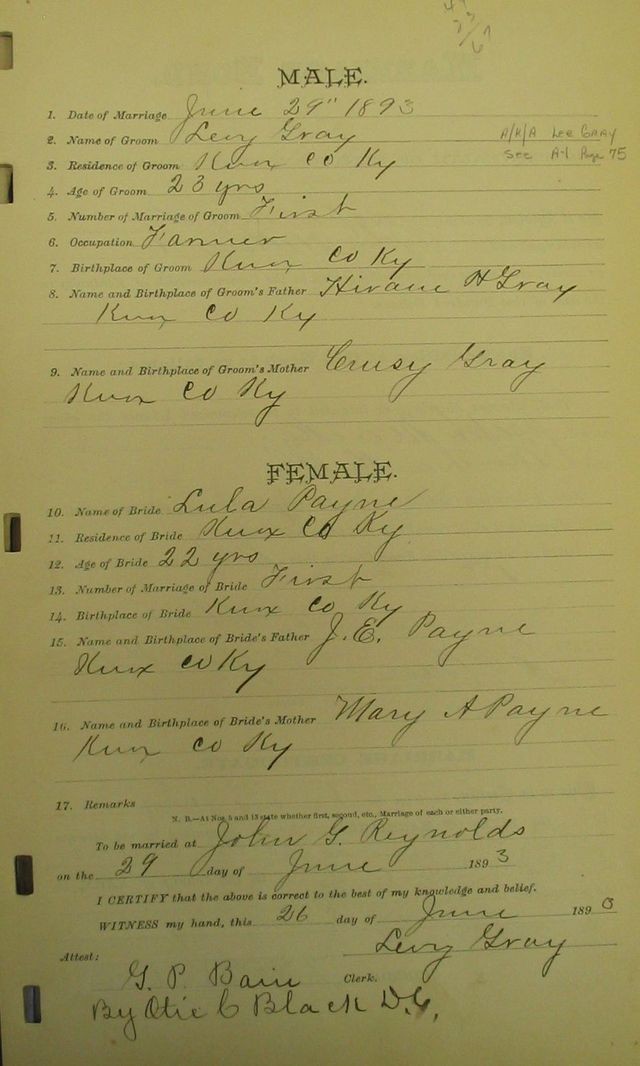 MALE.
1. Date of Marriage June 29" 1893
2. Name of Groom Levy Gray A/K/A LEE GRAY
3. Residence of Groom Knox Co Ky SEE A-1 Page 75
4. Age of Groom 23 yrs
5. Number of Marriage of Groom First
6. Occupation Farmer
7. Birthplace of Groom Knox Co Ky
8. Name and Birthplace of Groom's Father Hiram H Gray
Knox Co Ky
9. Name and Birthplace of Groom's Mother Gray
Knox Co Ky
FEMALE.
10. Name of Bride Lula Payne
11. Residence of Bride Knox Co Ky
12. Age of Bride 22 yrs
13. Number of Marriage of Bride First
14. Birthplace of Bride Knox Co Ky
15. Name and Birthplace of Bride's Father J. E. Payne
Knox Co Ky
16. Name and Birthplace of Bride's Mother Mary A Payne
Knox Co Ky
17. Remarks
N. B.—At Nos. 5 and 13 state whether first, second, etc., Marriage of each or either party.
To be married at John G. Reynolds
on the 29 day of June 1893
I CERTIFY that the above is correct to the best of my knowledge and belief.
WITNESS my hand, this 26 day of June 189
Levy Gray
Attest:
G. P. Bain Clerk.
By Otic C Black D.C,